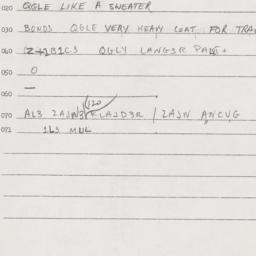 020 QGLE LIKE A SWEATER
030 BONDS QGLE VERY HEAVY COAT FOR TRA
040 QGLY LANG3R
050 O
060 —
120
070 AL3 2AJW3RLAJD3R / 2AJN ANCUG
071 1L3 MUL